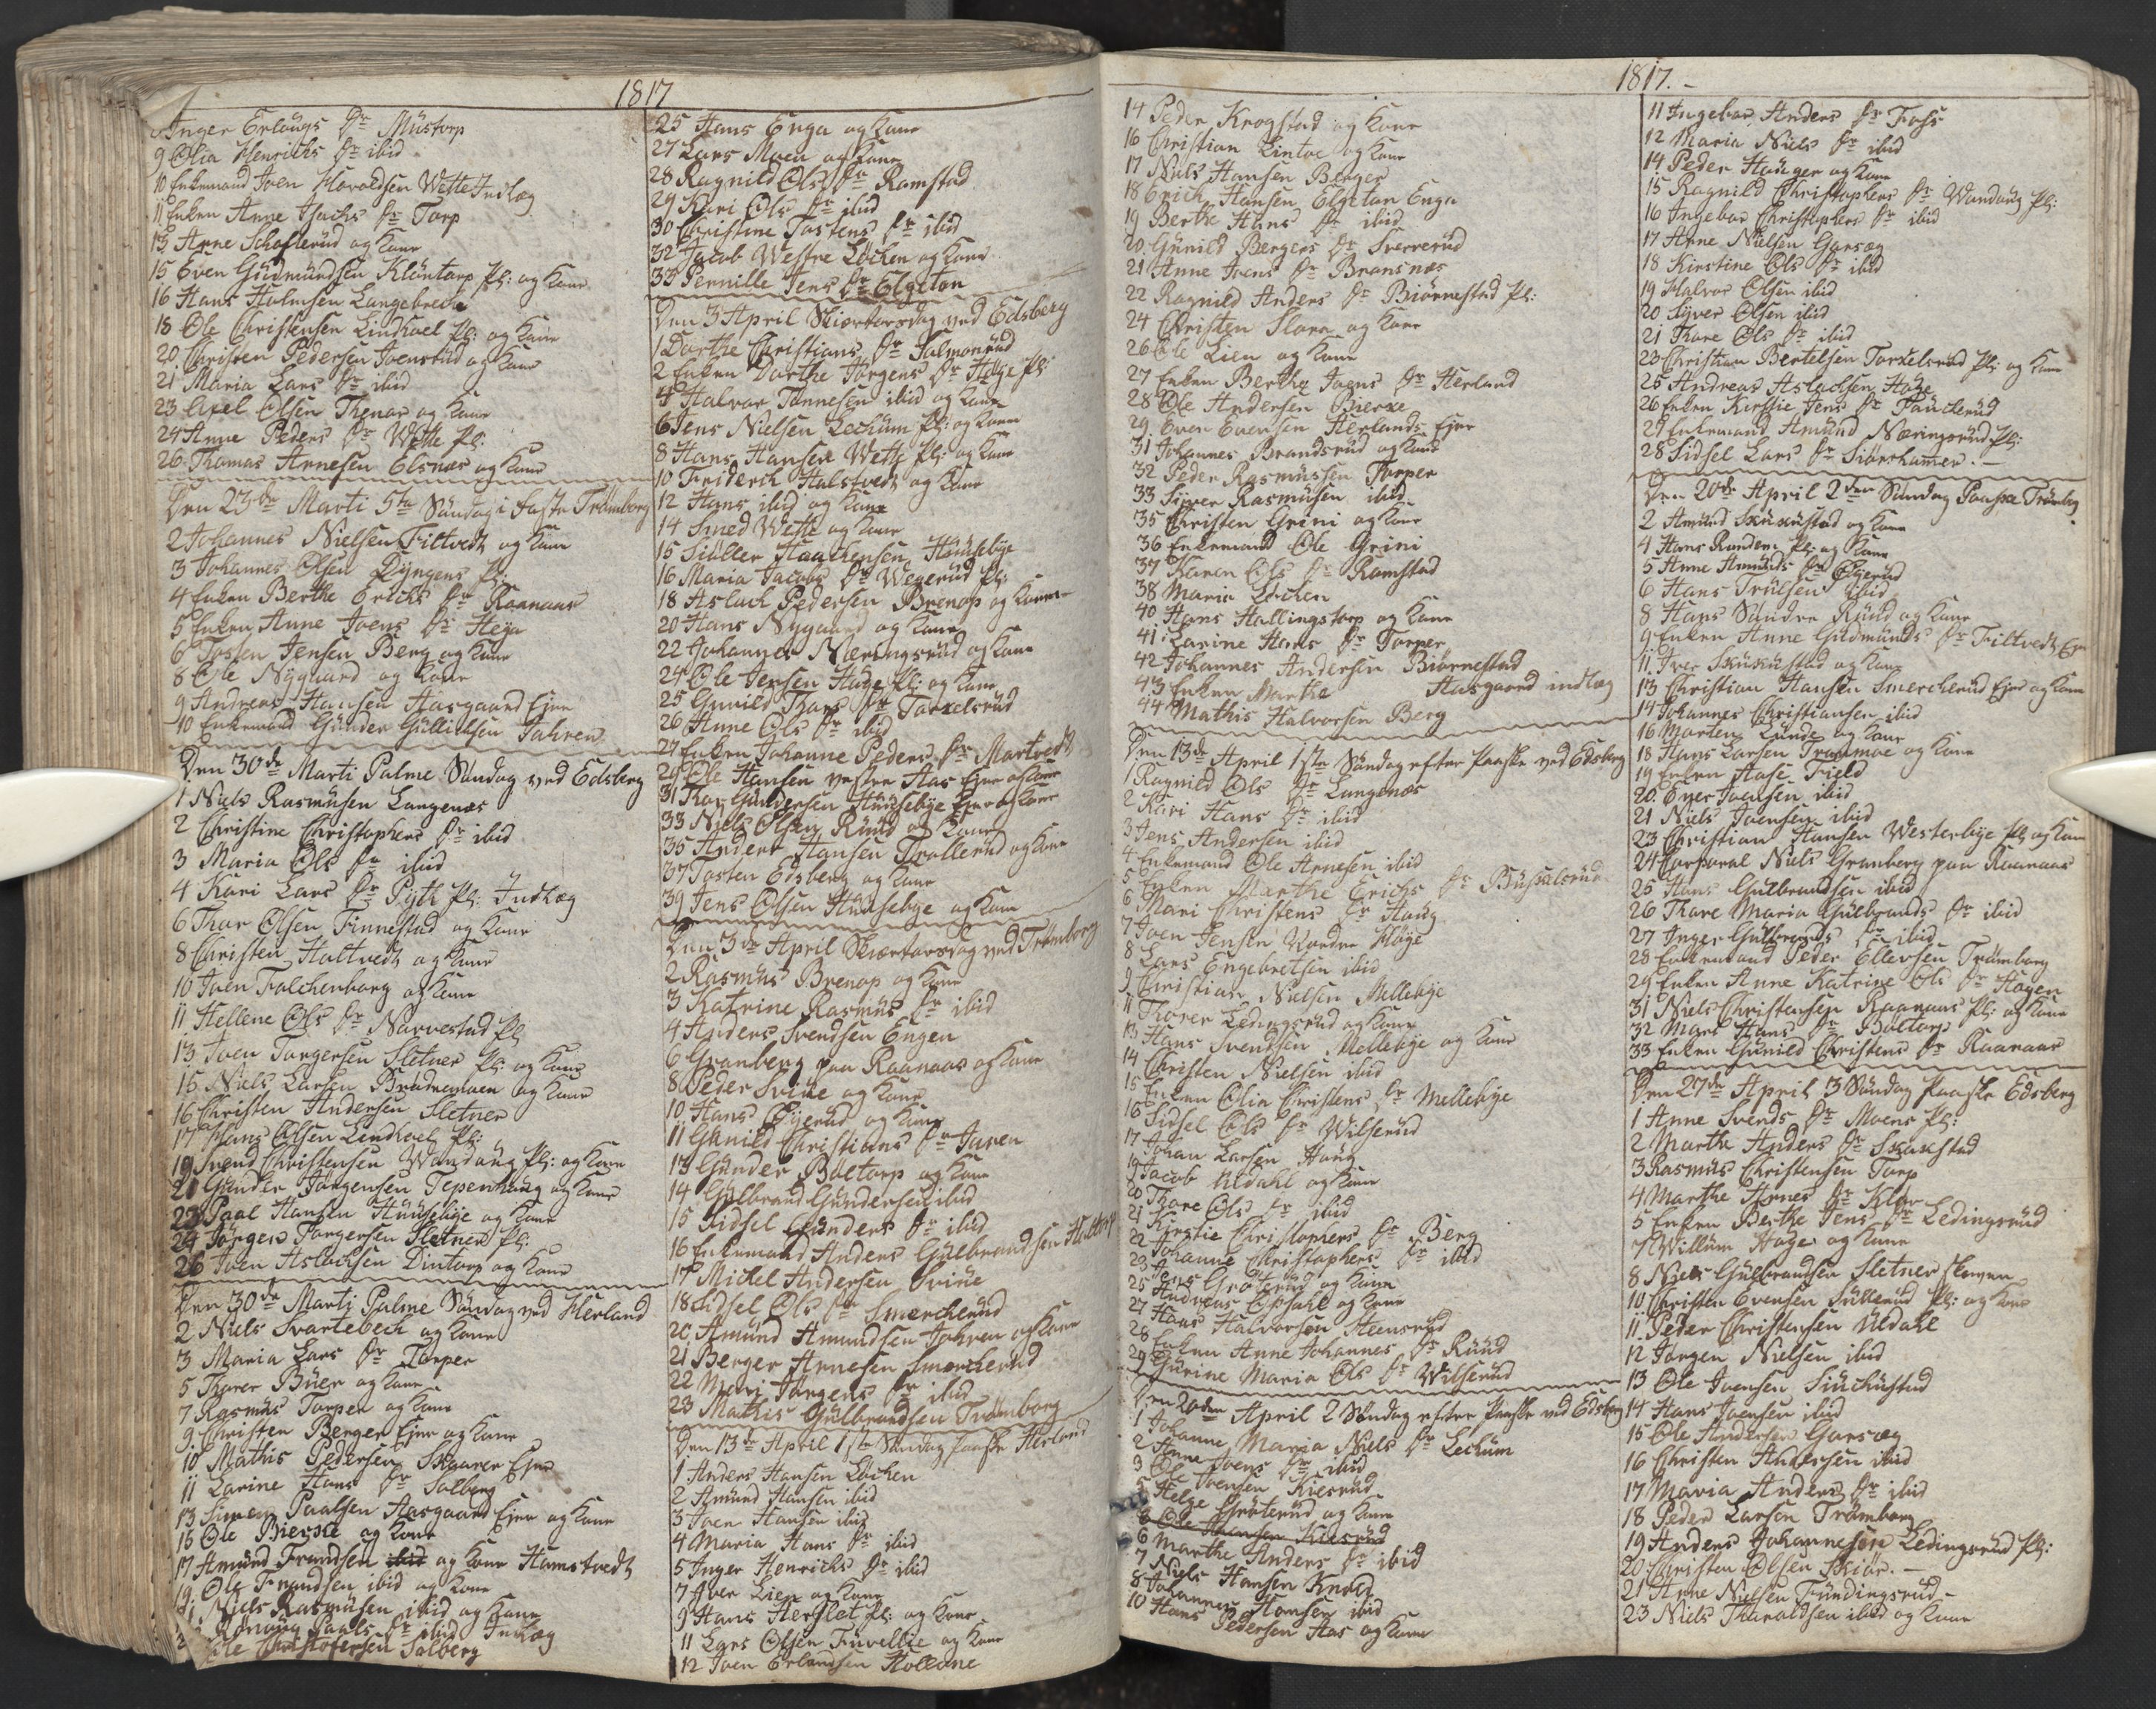 1817
Inger Erlaugs Dr Mustorp
9 Olia Henrichs Dr ibid
10 Enkemand Joen Haroldsen Wette Indlæg
11 Enken Anne Isachs Dr Torp
13 Arne Schofterud og Kone
15 Even Gudmundsen Kluntorp Pl: og Kone
16 Hans Holmsen Langebrech
18 Ole Christensen Lindhoel Pl: og Kone
20 Christen Pedersen Joenstad og Kone
21 Maria Lars Dr ibid
23 Axel Olsen Thenor og Kone
24 Anne Peders Dr Wette Pl:
26 Thomas Arnesen Elsnæs og Kone
Den 23de Marti 5te Søndag i Faste Trømborg
2 Johannes Nielsen Filtvedt og Kone
3 Johannes Olsen Dyngens Pl:
4 Enken Berthe Erichs Dr Raanaas
5 Enken Anne Joens Dr Heya
6 Tosten Jensen Berg og Kone
8 Ole Nygaard og Kone
9 Andreas Hansen Aasgaard Ejer
10 Enkemand Gunder Gullichsen Jahren
Den 30de Marti Palme Søndag ved Edsberg
1 Niels Rasmusen Langenæs
2 Christine Christophers Dr ibid
3 Maria Ols Dr ibid
4 Kari Lars Dr Pyth Pl: Indlæg
6 Thor Olsen Finnestad og Kone
8 Christen Haltvedt og Kone
10 Joen Falchenborg og Kone
11 Hellene Ols Dr Narvestad Pl
13 Joen Torgersen Sletner Pl: og Kone
15 Niels Larsen Brudremoen og Kone
16 Christen Andersen Sletner
17 Hans Olsen Lindhoel Pl:
19 Svend Christensen Wandaug Pl: og Kone
21 Gunder Jørgensen Tepenhaug og Kone
23 Paal Hansen Huusebye og Kone
24 Jørgen Torgersen Sletner Pl:
26 Joen Aslachsen Dintorp og Kone
Den 30de Marti Palme Søndag ved Herland
2 Niels Svartebech og Kone
3 Maria Lars Dr Torper
5 Thorer Buer og Kone
7 Rasmus Torper og Kone
9 Christen Berger Ejer og Kone
10 Mathis Pedersen Skaarer Ejer
11 Larine Hans Dr Solberg
13 Simen Paalsen Aasgaard Ejer og Kone
15 Ole Bierke og Kone
17 Amund Frandsen ibid og Kone Hamstvedt
19 Ole Frandsen ibid og Kone
Niels Rasmusen ibid og Kone
Rønnaug Paals Dr ibid Indlæg
Ole Christofersen Solberg
25 Hans Enga og Kone
27 Lars Moen og Kone
28 Ragnild Ols Dr Ramstad
29 Kari Ols Dr ibid
30 Christine Tostens Dr ibid
32 Jacob Westre Løchen og Kone
33 Pernille Jens Dr Elgeton
Den 3 April Skiertorsdag ved Edsberg
1 Dorthe Christians Dr Salmonrud
2 Enken Dorthe Jørgens Dr Høye Pl:
4 Halvor Tønnesen ibid og Kone
6 Jens Nielsen Lechum Pl: og Kone
8 Hans Hansen Wette Pl: og Kone
10 Friderich Halstvedt og Kone
12 Hans ibid og Kone
14 Smed Wette og Kone
15 Siuller Haachensen Huusebye
16 Maria Jacobs Dr Wegerud Pl:
18 Aslach Pedersen Brenop og Kone
20 Hans Nygaard og Kone
22 Johannes Næringsrud og Kone
24 Ole Jensen Hage Pl: og Kone
25 Gunild Thors Dr Torkelsrud
26 Anne Ols Dr ibid
27 Enken Johanne Peders Dr Martvedt
29 Ole Hansen Vestre Aas Ejer og Kone
31 Thor Gundersen Huusebye Ejer og Kone
33 Niels Olsen Ruud og Kone
35 Anders Hansen Trollerud og Kone
37 Tosten Edsberg og Kone
39 Jens Olsen Huusebye og Kone
Den 3de April Skiertorsdag ved Trømborg
2 Rasmus Brenop og Kone
3 Katrine Rasmus Dr ibid
4 Anders Svendsen Engen
6 Granberg paa Raanaas og Kone
8 Peder Svine og Kone
10 Hans Øyerud og Kone
11 Gunild Christians Dr Jaren
13 Gunder Boltorp og Kone
14 Gulbrand Gundersen ibid
15 Sidsel Gunders Dr ibid
16 Enkemand Anders Gulbrandsen Haltorp
17 Michel Andersen Svine
18 Sidsel Ols Dr Smercherud
20 Amund Amundsen Jahren og Kone
21 Berger Arnesen Smercherud
22 Mari Jørgens Dr ibid
23 Mathis Gulbrandsen Trømborg
Den 13de April 1ste Søndag Paaske Herland
1 Anders Hansen Løchen
2 Amund Hansen ibid
3 Joen Hansen ibid
4 Maria Hans Dr ibid
5 Inger Henrichs Dr ibid
7 Iver Lien og Kone
9 Hans Herslet Pl: og Kone
11 Lars Olsen Furellie og Kone
12 Joen Erlandsen Hollene
1817.-
14 Peder Krogstad og Kone
16 Christian Lintoe og Kone
17 Niels Hansen Berger
18 Erich Hansen Elgeton Enga
19 Berthe Hans Dr ibid
20 Gunild Bergers Dr Sverrerud
21 Anne Joens Dr Bransnæs
22 Ragnild Anders Dr Biørnestad Pl:
24 Christen Slora og Kone
26 Ole Lien og Kone
27 Enken Berthe Joens Dr Herland
28 Ole Andersen Bierke
29 Even Evensen Herlands Ejer
31 Johannes Brandsrud og Kone
32 Peder Rasmussen Torper
33 Syver Rasmusen ibid
35 Christen Grini og Kone
36 Enkemand Ole Grini
37 Karen Ols Dr Ramstad
38 Maria Løchen
40 Hans Hallingstorp og Kone
41 Larine Hans Dr Torper
42 Johannes Andersen Biørnestad
43 Enken Marthe Aasgaard indlæg
44 Mathis Halvorsen Berg
Den 13de April 1ste Søndag efter Paaske ved Edsberg
1 Ragnild Ols Dr Langenæs
2 Kari Hans Dr ibid
3 Jens Andersen ibid
4 Enkemand Ole Arnesen ibid
5 Enken Marthe Erichs Dr Busselsrud
6 Mari Christens Dr Haug
7 Joen Jensen Nordre Høye
8 Lars Engebretsen ibid
9 Christian Nielsen Mellebye
11 Thorer Ledingsrud og Kone
13 Hans Svendsen Mellebye og Kone
14 Christen Nielsen ibid
15 Enken Olia Christens Dr Mellebye
16 Sidsel Ols Dr Wilserud
17 Johan Larsen Haug
19 Jacob Uldahl og Kone
20 Thore Ols Dr ibid
21 Kirstie Christophers Dr Berg
22 Johanne Christophers Dr ibid
23 Jens Grøterud og Kone
25 Andreas Opsahl og Kone
27 Hans Halvorsen Steensrud
28 Enken Anne Johannes Dr Ruud
29 Gurine Maria Ols Dr Wilserud
Den 20de April 2 Søndag efter Paaske ved Edsberg
1 Johanne Maria Niels Dr Lechum
2 Anne Joens Dr ibid
3 Ole Joensen Kiesrud
5 Helge Grøterud og Kone
6 Ole Joensen Kiesrud
6 Marthe Anders Dr ibid
7 Niels Hansen Knoll
8 Johannes Hansen ibid
10 Hans Pedersen Aas og Kone
11 Ingebor Anders Dr Foss
12 Maria Niels Dr ibid
14 Peder Hauger og Kone
15 Ragnild Christophers Dr Wandaug Pl:
16 Ingebor Christophers Dr ibid
17 Arne Nielsen Garseg
18 Kirstine Ols Dr ibid
19 Halvor Olsen ibid
20 Syver Olsen ibid
21 Thore Ols Dr ibid
23 Christian Bertelsen Torkelsrud Pl: og Kone
25 Andreas Aslachsen Hage
26 Enken Kirstie Jens Dr Paulerud
27 Enkemand Amund Næringsrud Pl:
28 Sidsel Lars Dr Siørshammer.-
Den 20de April 2den Søndag Paaske Trømborg
2 Amund Skukustad og Kone
4 Hans Runden Pl: og Kone
5 Anne Amunds Dr Øyerud
6 Hans Trulsen ibid
8 Hans Søndre Ruud og Kone
9 Enken Anne Gudmunds Dr Filtvedt Ejer
11 Iver Skukustad og Kone
13 Christian Hansen Smercherud Ejer og Kone
14 Johannes Christiansen ibid
16 Morten Lunde og Kone
18 Hans Larsen Tronmoe og Kone
19 Enken Aase Field
20 Ener Joensen ibid
21 Niels Joensen ibid
23 Christian Hansen Westerbye Pl: og Kone
24 Corporal Niels Granberg paa Raanaas
25 Hans Gulbrandsen ibid
26 Thore Maria Gulbrands Dr ibid
27 Inger Gulbrands Dr ibid
28 Enkemand Peder Ellevsen Trømborg
29 Enken Anne Katrine Ols Dr Hagen
31 Niels Christensen Raanaas Pl: og Kone
32 Mari Hans Dr Boltorp
33 Enken Gunild Christens Dr Raanaas
Den 27de April 3 Søndag Paaske Edsberg
1 Anne Svends Dr Moens Pl:
2 Marthe Anders Dr Skakstad
3 Rasmus Christensen Torp
4 Marthe Arnes Dr Kløv
5 Enken Berthe Jens Dr Ledingsrud
7 Willum Hage og Kone
8 Niels Gulbrandsen Sletner Skoven
10 Christen Evensen Sullerud Pl: og Kone
11 Peder Christensen Uldahl
12 Jørgen Nielsen ibid
13 Ole Joensen Siuchustad
14 Hans Joensen ibid
15 Ole Andersen Garseg
16 Christen Andersen ibid
17 Maria Anders Dr ibid
18 Peder Larsen Trømborg
19 Anders Johannesen Ledingsrud Pl:
20 Christen Olsen Skiør.-
21 Arne Nielsen Fundingsrud-
23 Niels Tharaldsen ibid og Kone